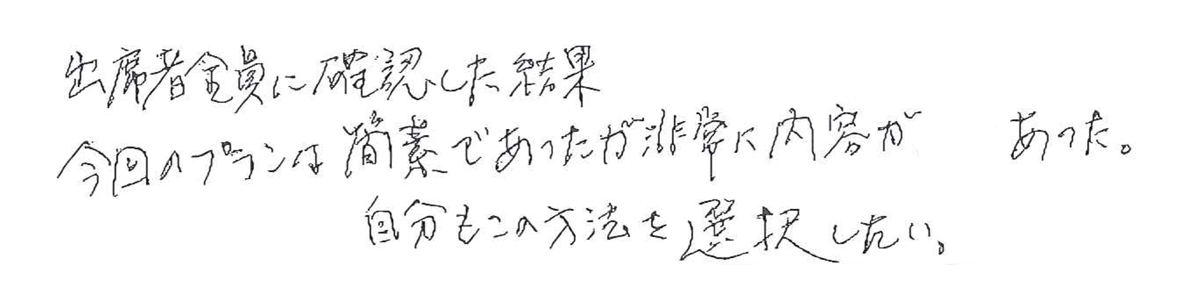 出席者全員に確認した結果
今回のプランは簡素であったが非常に内容が あった。
自分もこの方法を選択したい。